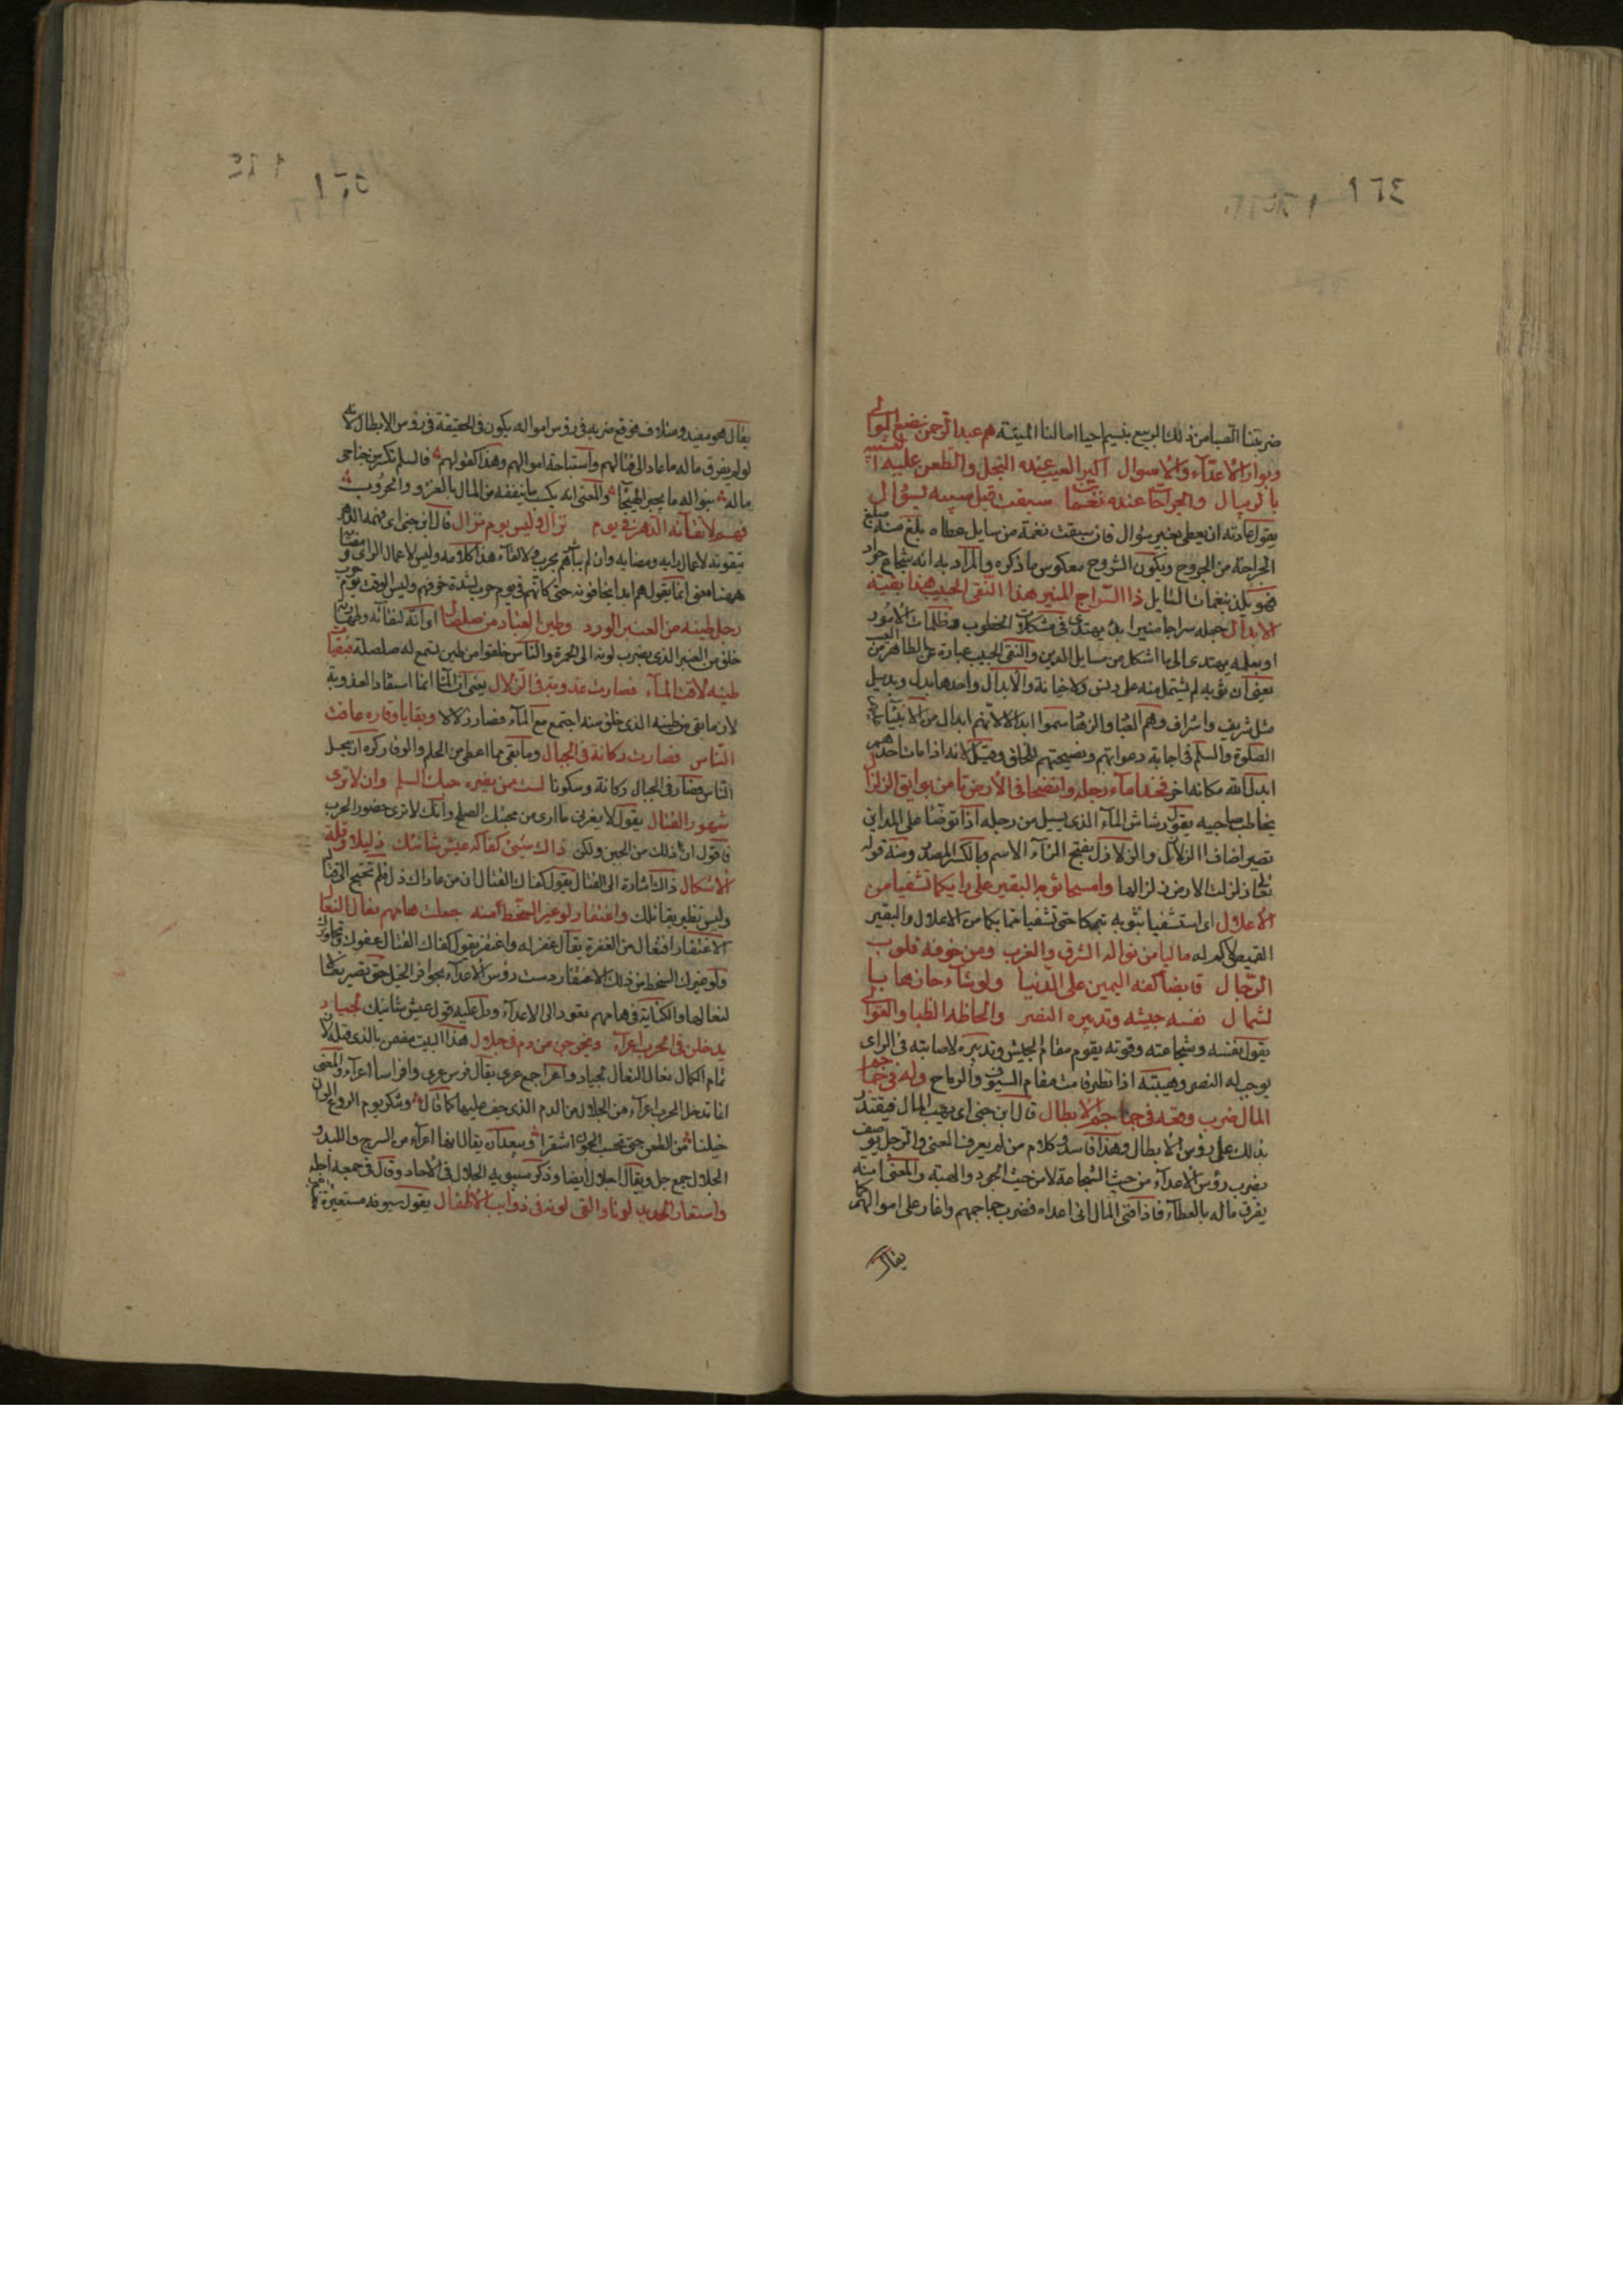 ١٦٤
ضربتنا الصبا من ذلك الربيع بنسيم احيا امالنا الميتة هم عبد الرحمن نفع الموالي
وبوار الاعداء والاموال اكبر العيب عنده البخل والطعن عليه التشبيه
بالرئبال والجراحات عنده نغمات سبقت قبل سيبه بسؤال
يقول عادته ان يعطي بغير سؤال فان سبقت نغمة من سايل عطاه بلغ منه مبلغ
الجراحة من المجروح ويكون الشروح معكوس ما ذكره والمراد به انه شجاع جواد
فهو يلذ نغمات السايل ذا السراج المنير هذا النقي الجيب هذا بقية
الابدال جعله سراجا منيرا بل يهتدى في مشكلات الخطوب وظلمات الامور
او بعلمه يهتدى الى ما اشكل من مسايل الدين والنقي الجيب عبارة عن الطاهر من العيب
يعني ان ثوبه لم يشتمل منه على دنس ولا خيانة والابدال واحدها بدل وبديل
مثل شريف واشراف وهم العباد والزهاد سموا ابدالا لانهم ابدال من الانبياء عليهم
الصلوة والسلم في اجابة دعواتهم ونصيحتهم للخلق وقيل لانه اذا مات احدهم
ابدل الله مكانه اخر فخذا ماء رجله وانضحا في الارض تامن بوايق الزلزال
يخاطب صاحبيه يقول رشاش الماء الذي يسيل من رجله اذا توضأ على المداين
تصير اضاف الزلازل والزلازل بفتح الزاء الاسم وبالكسر المصدر ومنه قوله
تعالى اذا زلزلت الارض زلزالها وامسحا ثوبه البقير على دايكما تشفيا من
الاعلال اي استشفيا بثوبه تبركا حتى تشفيا مما بكما من الاعلال والبقير
القميص لا كم له ماليا من نواله الشرق والغرب ومن خوفه قلوب
الرجال قابضا كفه اليمين على الدنيا ولو شاء حازها با
لشمال نفسه جيشه وتدبيره النصر والحاظه الظبا والعوالي
يقول نفسه وشجاعته وقوته يقوم مقام الجيش وتدبيره لاصابته في الراي
يوجب له النصر وهيبته اذا نظر قامت مقام السيوف والرماح وله في جماجم
المال ضرب وقعه في جماجم الابطال قال ابن جني اي يهب المال فيقتدر
بذلك على رؤس الابطال وهذا فاسد وكلام من لم يعرف المعنى والرجل يوصف
بضرب رؤس الاعداء من حيث الشجاعة لا من حيث الجود والهبة والمعنى انه
يفرق ماله بالعطاء فاذا افنى المال اتى اعداه فضرب جماجمهم واغار على اموالهم كما
يقال
١٦٥
يقال هو مفيد ومتلاف فوقع ضربه في رؤس امواله يكون في الحقيقة في رؤس الابطال لانه
لو لم يفرق ماله ما عاد الى قتالهم واستباحة اموالهم وهذا كقولهم فالسلم تكسر من جناحى
ماله بنواله ما يجبر الهيجا والمعنى انه يكسب ما ينفقه من المال بالغزو والحروب
فهم لاتقائه الدهر في يوم نزال وليس يوم نزال قال ابن جني اي فهمه الدهر
يتقونه لاعمال رايه ومضايه وان لم يباشرهم بحرب ولا لقاء هذا كلامه وليس لاعمال الراي ومضائه
ههنا معنى انما يقول هم ابدا يخافونه حتى كانهم في يوم حرب لشدة خوفهم وليس الوقت يوم حرب
رجل طينه من العنبر الورد وطين العباد من صلصال اوانه لنقائه وطهارته
خلق من العنبر الذي يضرب لونه الى الحمرة والناس خلقوا من طين يسمع له صلصلة فبقيات
طينه لاقت الماء فصارت عذوبة في الزلال يعنى ان الماء انما استفاد العذوبة
لان ما بقى من طينه الذي خلق منه اجتمع مع الماء فصار زلالا وبقايا وقاره عافت
الناس فصارت ركانة في الجبال وما بقى مما اعطى من الحلم والوقار كره ان يحل
الناس فصار في الجبال ركانة وسكونا لست ممن يغره حبك السلم وان لا ترى
شهود القتال يقول لا يغرني ما ارى من محبتك الصلح وانك لا ترى حضور الحرب
فاقول ان ذلك من الجبن ولكن ذاك شيء كفاكه عيش شانئك ذليلا وقلة
الاشكال ذاك اشارة الى القتال يقول كفاك القتال ان من عاداك ذل فلم تحتج الى قتال
وليس نظير يقاتلك واغتفار لو غير السخط منه جعلت هامهم نعال النعال
الاغتفار افتعال من المغفرة يقال غفر له واغتفر يقول كفاك القتال عفوك وتجاوزك
ولو غيرك السخط من ذلك الاغتفار دست رؤس الاعداء بحوافر الخيل حتى تصير نعالا
لنعالها والكناية في هامهم تعود الى الاعداء ودل عليه قوله عيش شانئك لجياد
يدخلن في الحرب اعراء ويخرجن من دم في جلال هذا البيت مضمن بالذي قبله لان
تمام الكمال نعال النعال لجياد واعراء جمع عرى يقال فرس عرى وافراس اعراء والمعنى
انها تدخل الحرب اعراء من الجلال من الدم الذي جف عليها كما قال وننكر يوم الروع الوان
خيلنا من الطعن حتى تحسب الجون اشقرا وبعد ان يقال انها اعراء من السرج واللبد و
الجلال جمع جل ويقال اجلال ايضا وذكر سيبويه الجلال في الاحاد وقال في جمعه اجلة
واستعار الحديد لونا والقى لونه في ذوايب الاطفال يقول سيوفه مستعيرة